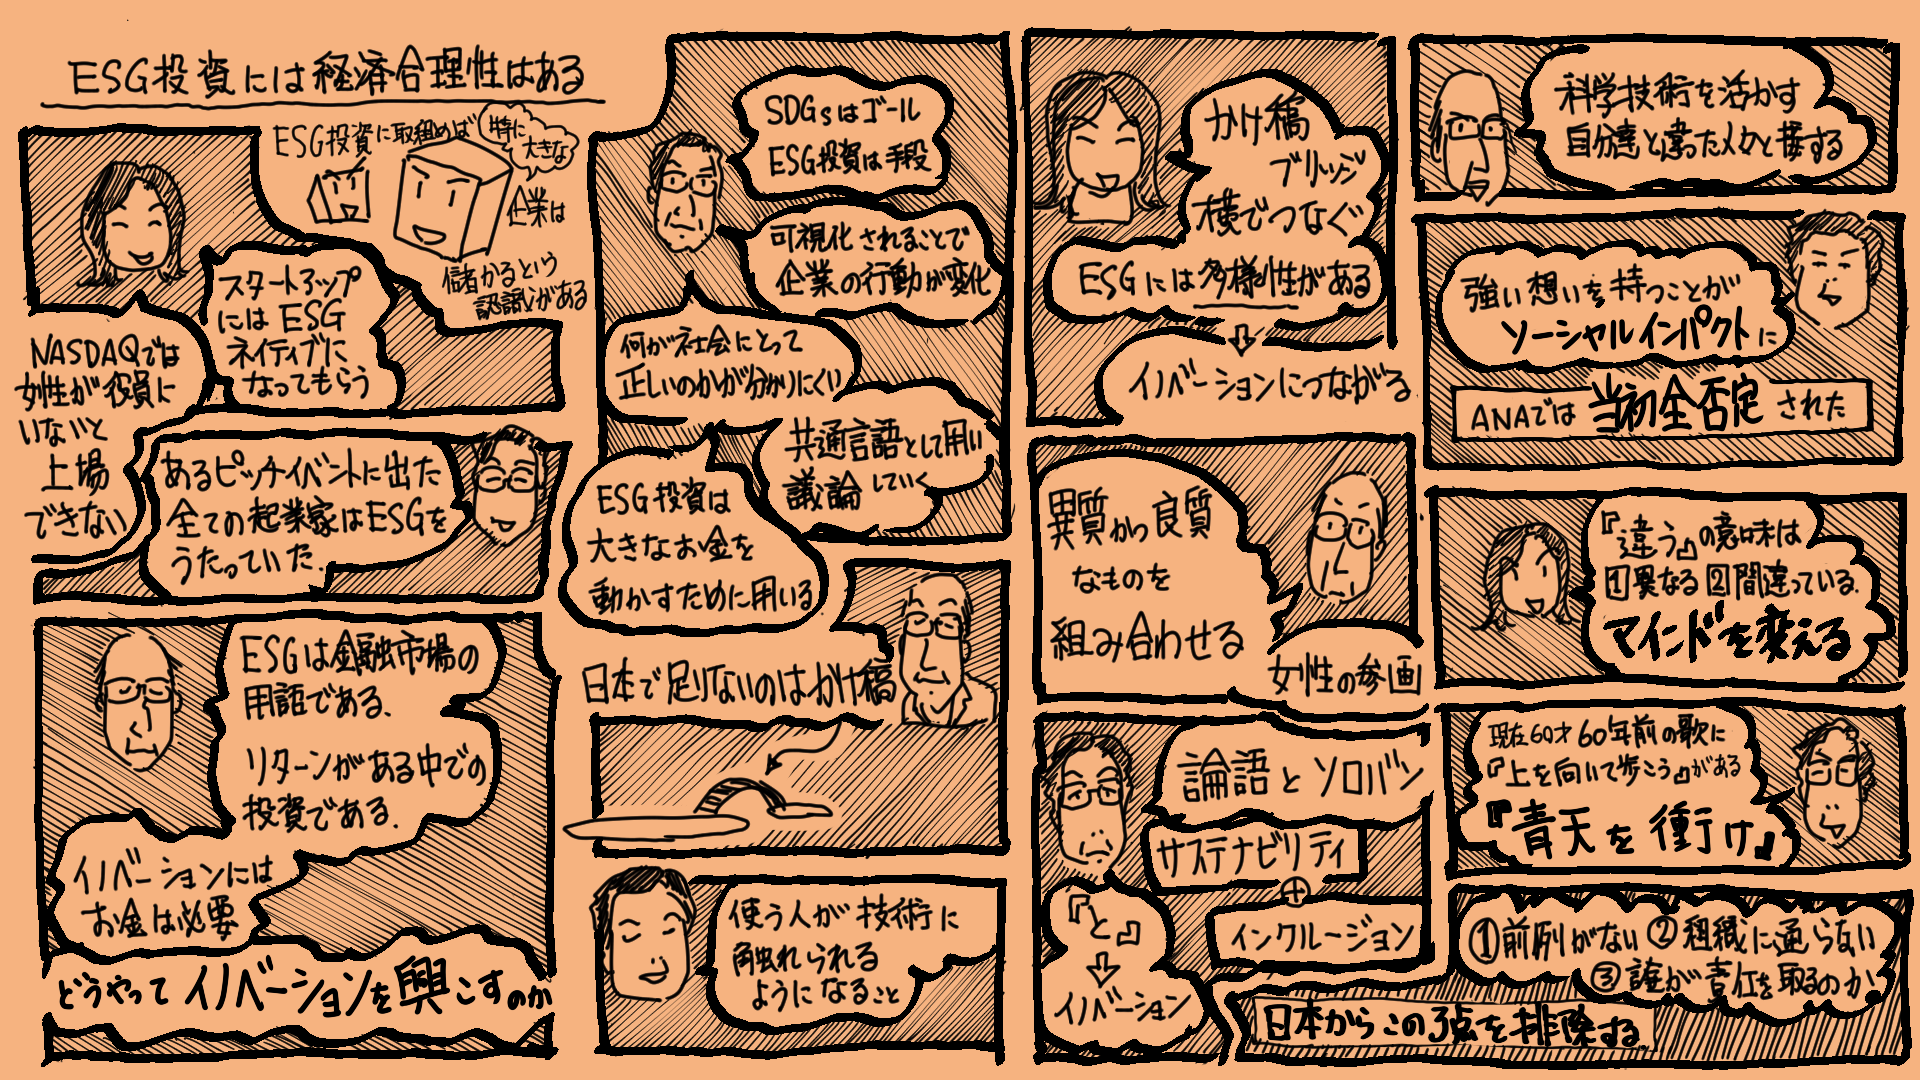 ESG投資には経済合理性はある
ESG投資に取組めば
特に
大きな
企業は
儲かるという
認識がある
スタートアップ
には ESG
ネイティブに
なってもらう
NASDAQでは
女性が役員に
いないと
上場
できない
あるピッチイベントに出た
全ての起業家はESGを
うたっていた.
ESGは金融市場の
用語である.
リターンがある中での
投資である.
イノベーションには
お金は必要
どうやってイノベーションを興こすのか
SDGsはゴール
ESG投資は手段
可視化されることで
企業の行動が変化
何が社会にとって
正しいのかが分かりにくい
共通言語として用い
議論していく
ESG投資は
大きなお金を
動かすために用いる
日本で足りないのはかけ橋
使う人が技術に
触れられる
ようになること
かけ橋
ブリッジ
横でつなぐ
ESGには多様性がある
イノベーションにつながる
異質かつ良質
なものを
組み合わせる
女性の参画
論語とソロバン
サステナビリティ
+
インクルージョン
『と』
イノベーション
科学技術を活かす
自分達と違った人々と接する
強い想いを持つことが
ソーシャルインパクトに
ANAでは当初全否定された
『違う』の意味は
1異なる 2間違っている.
マインドを変える
現在60才 60年前の歌に
『上を向いて歩こう』がある
『青天を衝け』
①前例がない ②組織に通らない
③誰が責任を取るのか
日本からこの3点を排除する.